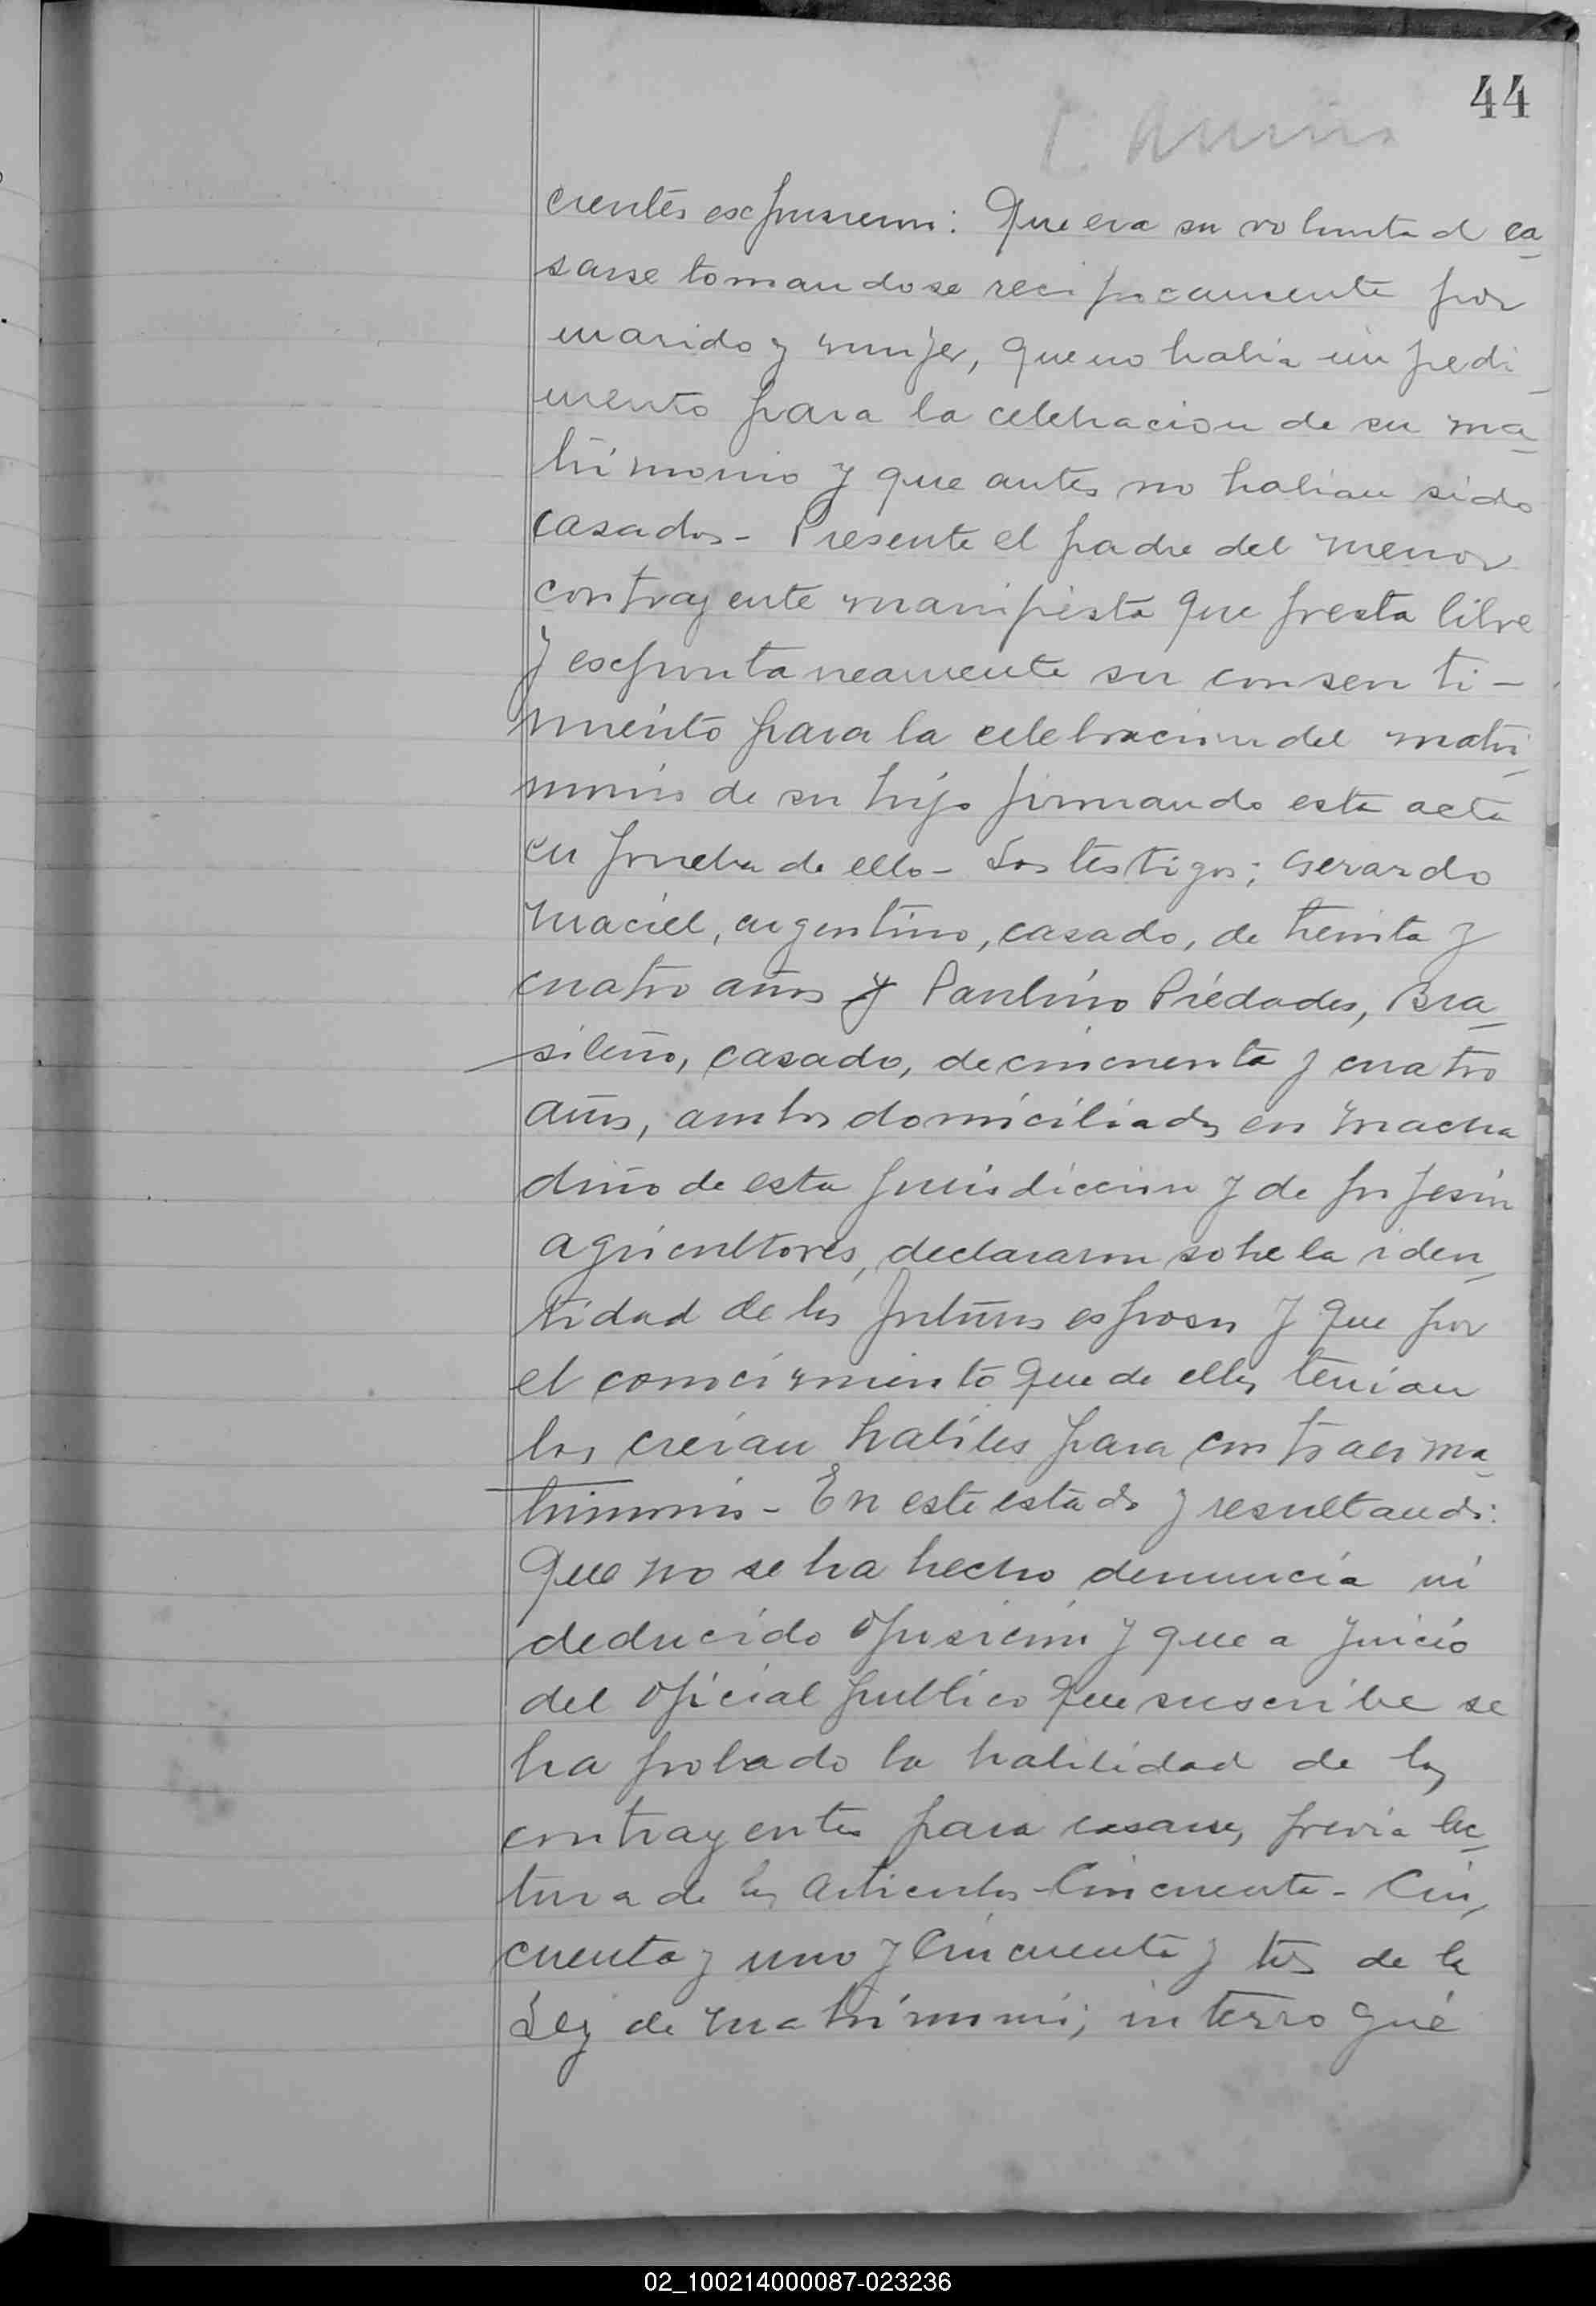 44
cientes escpusieron: Que era su voluntad ca_
sarse tomandose reciprocamente por
marido y mujer, que no habia impedi_
mento para la celebracion de su ma_
trimonio y que antes no habian sido
casados- Presente el padre del menor
contrayente manifiesta que presta libre
y escpontaneamente su consenti-
miento para la celebracion del matri_
monio de su hijo firmando esta acta
en prueba de ello- Los testigos; Gerardo
Maciel, argentino, casado, de treinta y
cuatro años y Paulino Piedades, Bra_
sileño, casado, de cincuenta y cuatro
años, ambos domiciliados en Macha
diño de esta jurisdiccion y de profesion
agricultores, declararon sobre la iden_
tidad de los futuros esposos y que por
el conocimiento que de ellos tenian
los creian habiles para contraer ma_
trimonio- En este estado y resultando:
Que no se ha hecho denuncia ni
deducido oposicion y que a juicio
del oficial publico que suscribe se
ha probado la habilidad de los
contrayentes para casarse, previa lec_
tura de los articulos Cincuenta- Cin_
cuenta y uno y Cincuenta y tres de la
Ley de Matrimonio; interrogué
02_100214000087-023236